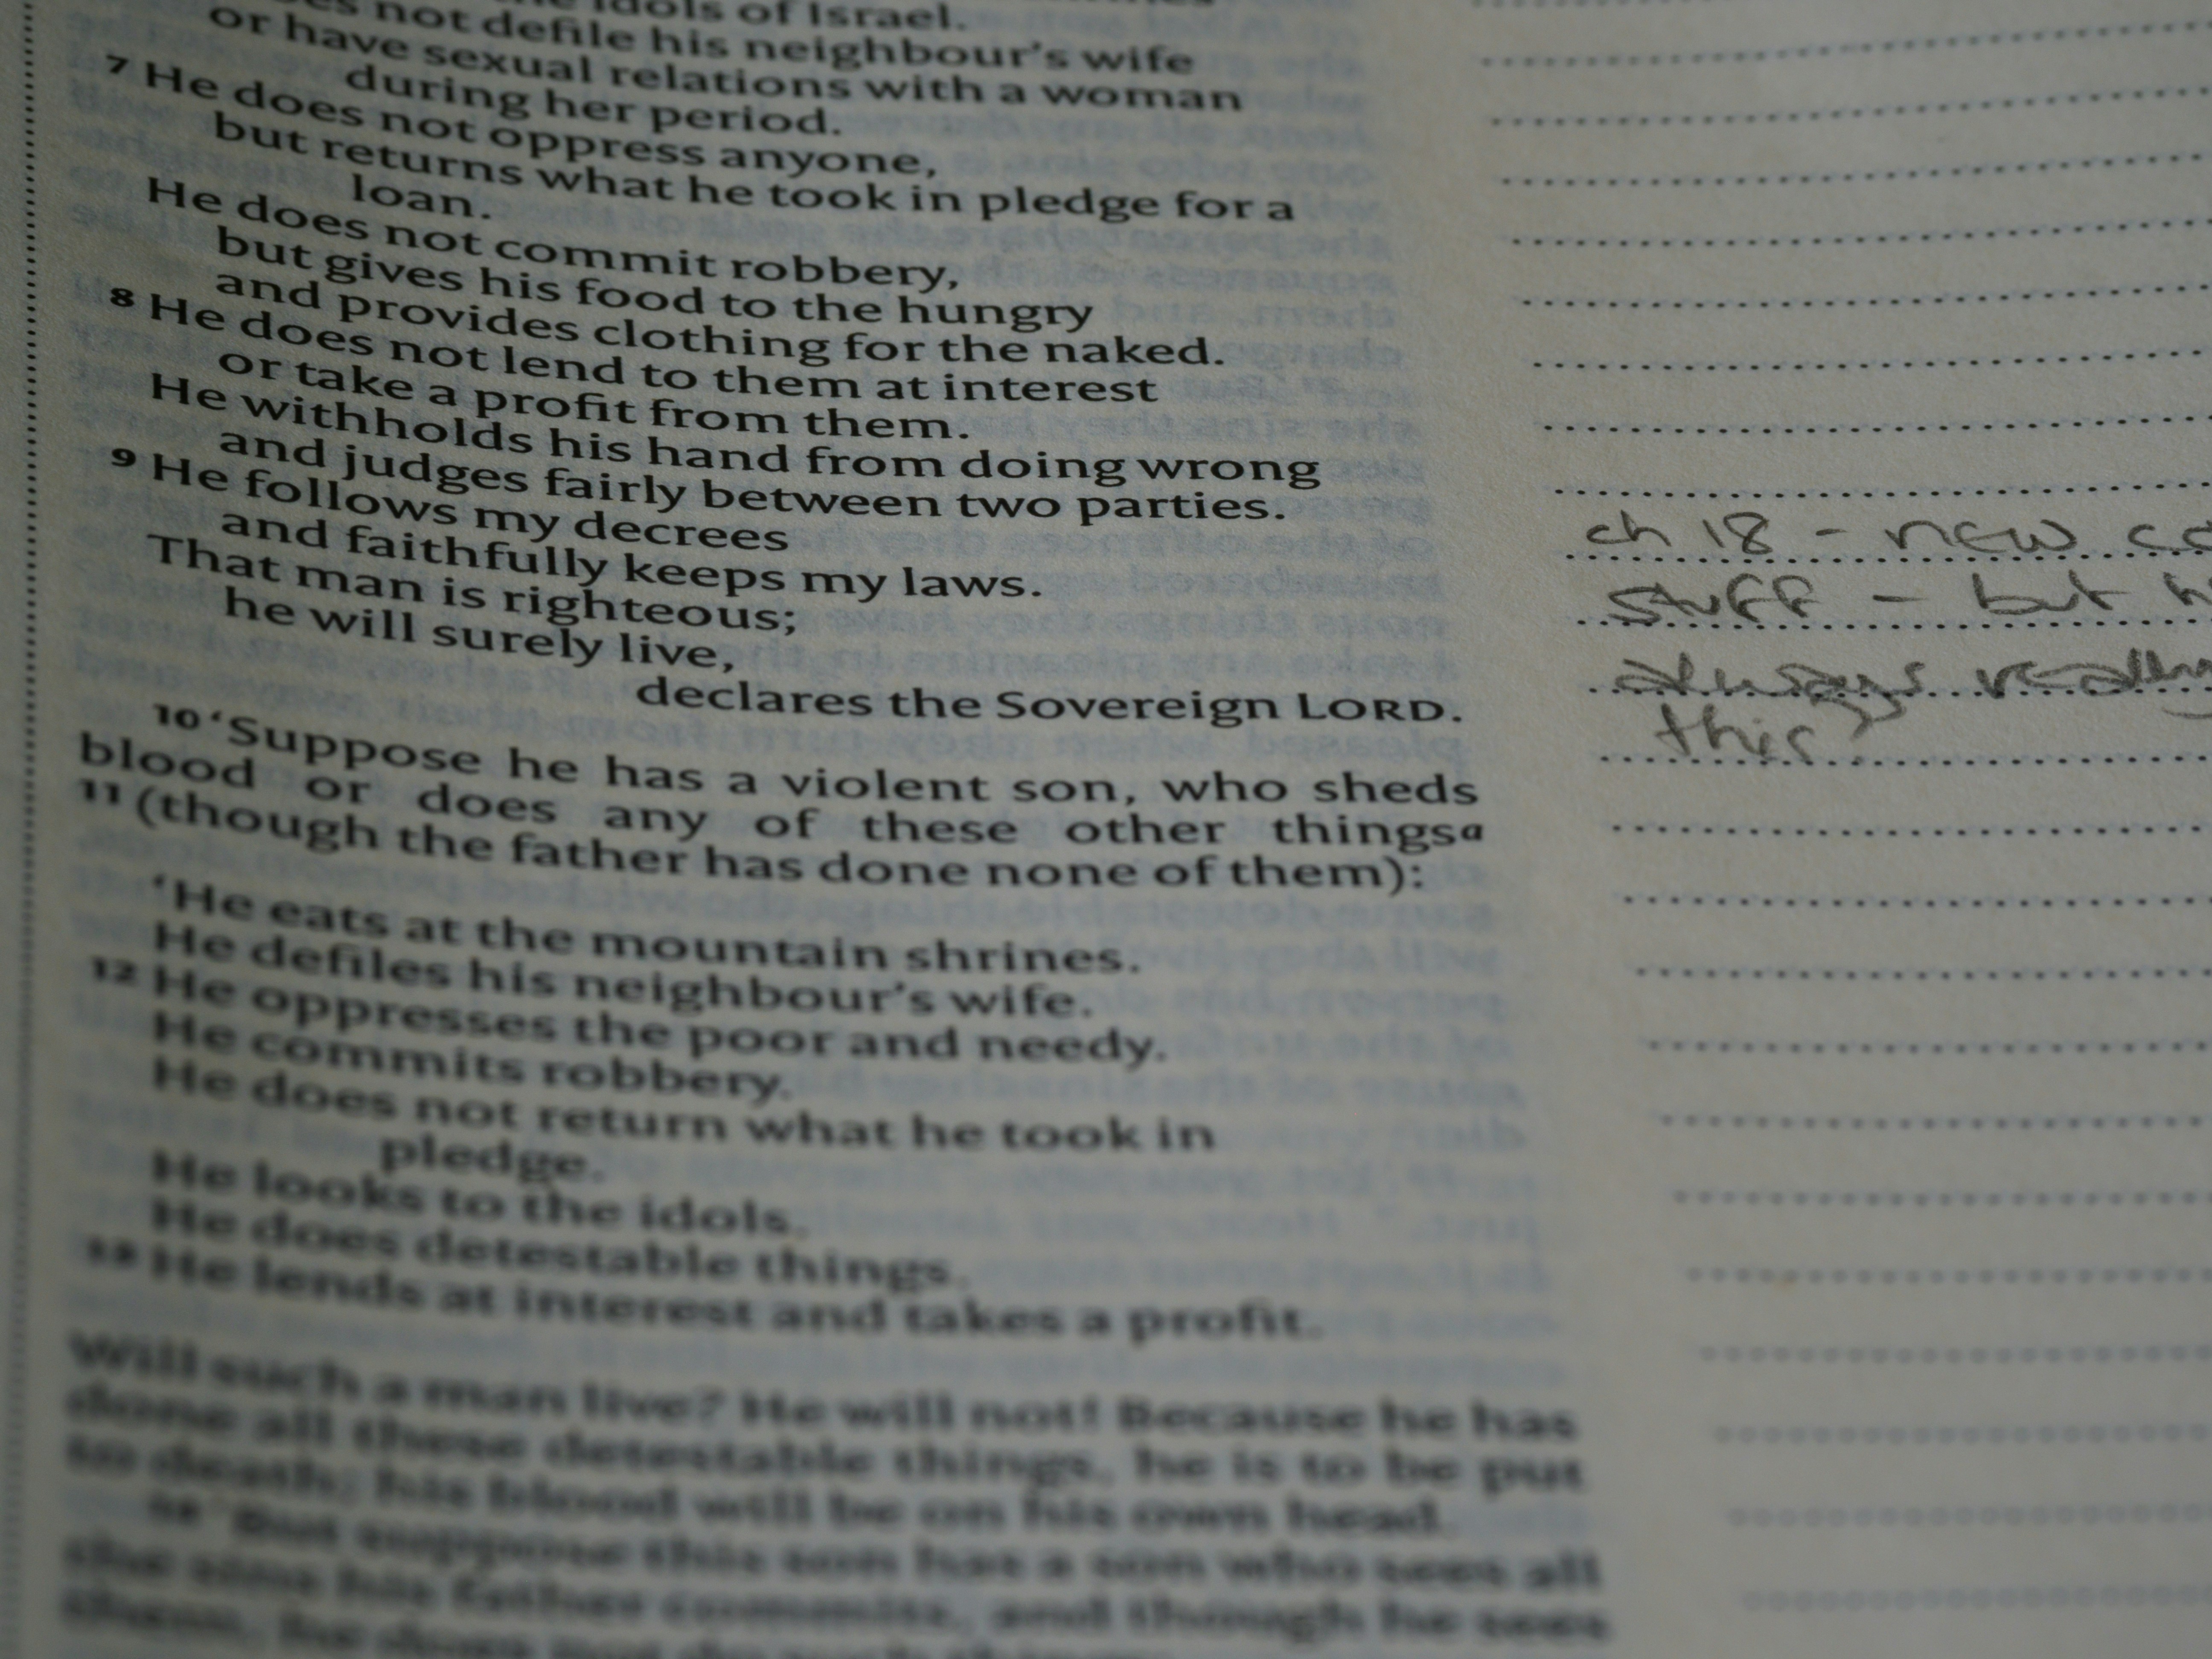 idols of Israel.
not defile his neighbour's wife
or have sexual relations with a woman
during her period.
7 He does not oppress anyone,
but returns what he took in pledge for a
loan.
He does not commit robbery,
but gives his food to the hungry
and provides clothing for the naked.
8 He does not lend to them at interest
or take a profit from them.
He withholds his hand from doing wrong
and judges fairly between two parties.
9 He follows my decrees
and faithfully keeps my laws.
That man is righteous;
he will surely live,
declares the Sovereign LORD.
10 ‘Suppose he has a violent son, who sheds
blood or does any of these other thingsa
11 (though the father has done none of them):
‘He eats at the mountain shrines.
He defiles his neighbour's wife.
12 He oppresses the poor and needy.
He commits robbery.
He does not return what he took in
pledge.
He looks to the idols.
He does detestable things.
13 He lends at interest and takes a profit.
Will such a man live? He will not! Because he has
done all these detestable things, he is to be put
to death; his blood will be on his own head.
14 ‘But suppose this son has a son who sees all
the sins his father commits, and though he sees
them, he does not do such things:
ch 18 - new
stuff - but
always really
this?